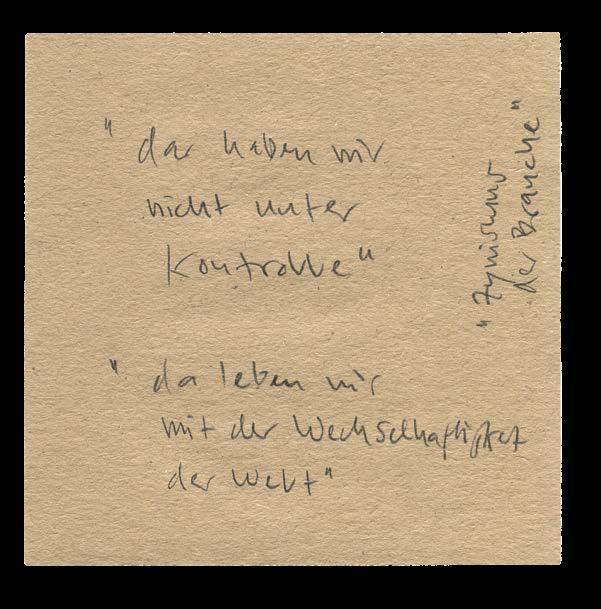 "das haben wir
nicht unter
Kontrolle"
"da leben wir
mit der Wechselhaftigkeit
der Welt"
"Zynismus
der Branche"